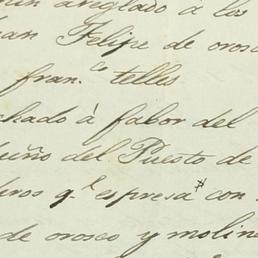 arreglado á los
Felipe de orosco
fran.co telles
á fabor del
del Puesto de
q.e espresa con
de orosco y moline